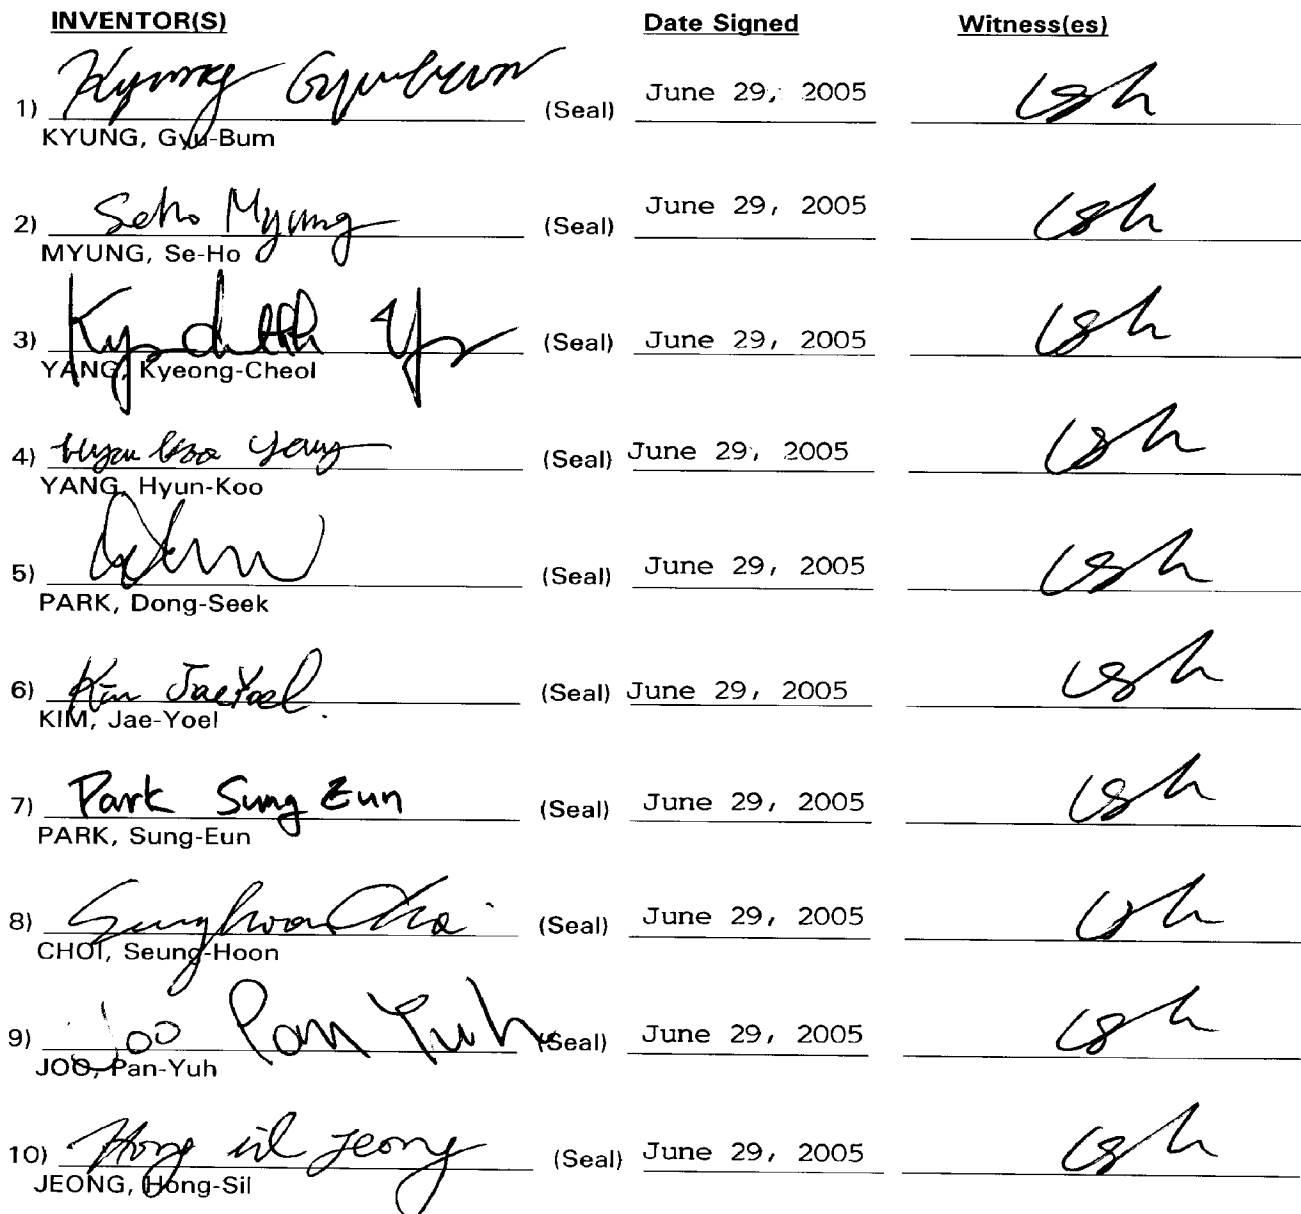 INVENTOR(S) Date Signed Witness(es)
1) Kyung Gyubum (Seal) June 29, 2005
KYUNG, Gyu-Bum
2) Seho Myung (Seal) June 29, 2005
MYUNG, Se-Ho
3) (Seal) June 29, 2005
YANG, Kyeong-Cheol
4) Hyun Koo Yang (Seal) June 29, 2005
YANG, Hyun-Koo
5) (Seal) June 29, 2005
PARK, Dong-Seek
6) Kim JaeYoel. (Seal) June 29, 2005
KIM, Jae-Yoel
7) Park Sung Eun (Seal) June 29, 2005
PARK, Sung-Eun
8) Sunghoon Choi (Seal) June 29, 2005
CHOI, Seung-Hoon
9) Joo Pan Yuh (Seal) June 29, 2005
JOO, Pan-Yuh
10) Hong sil jeong (Seal) June 29, 2005
JEONG, Hong-Sil